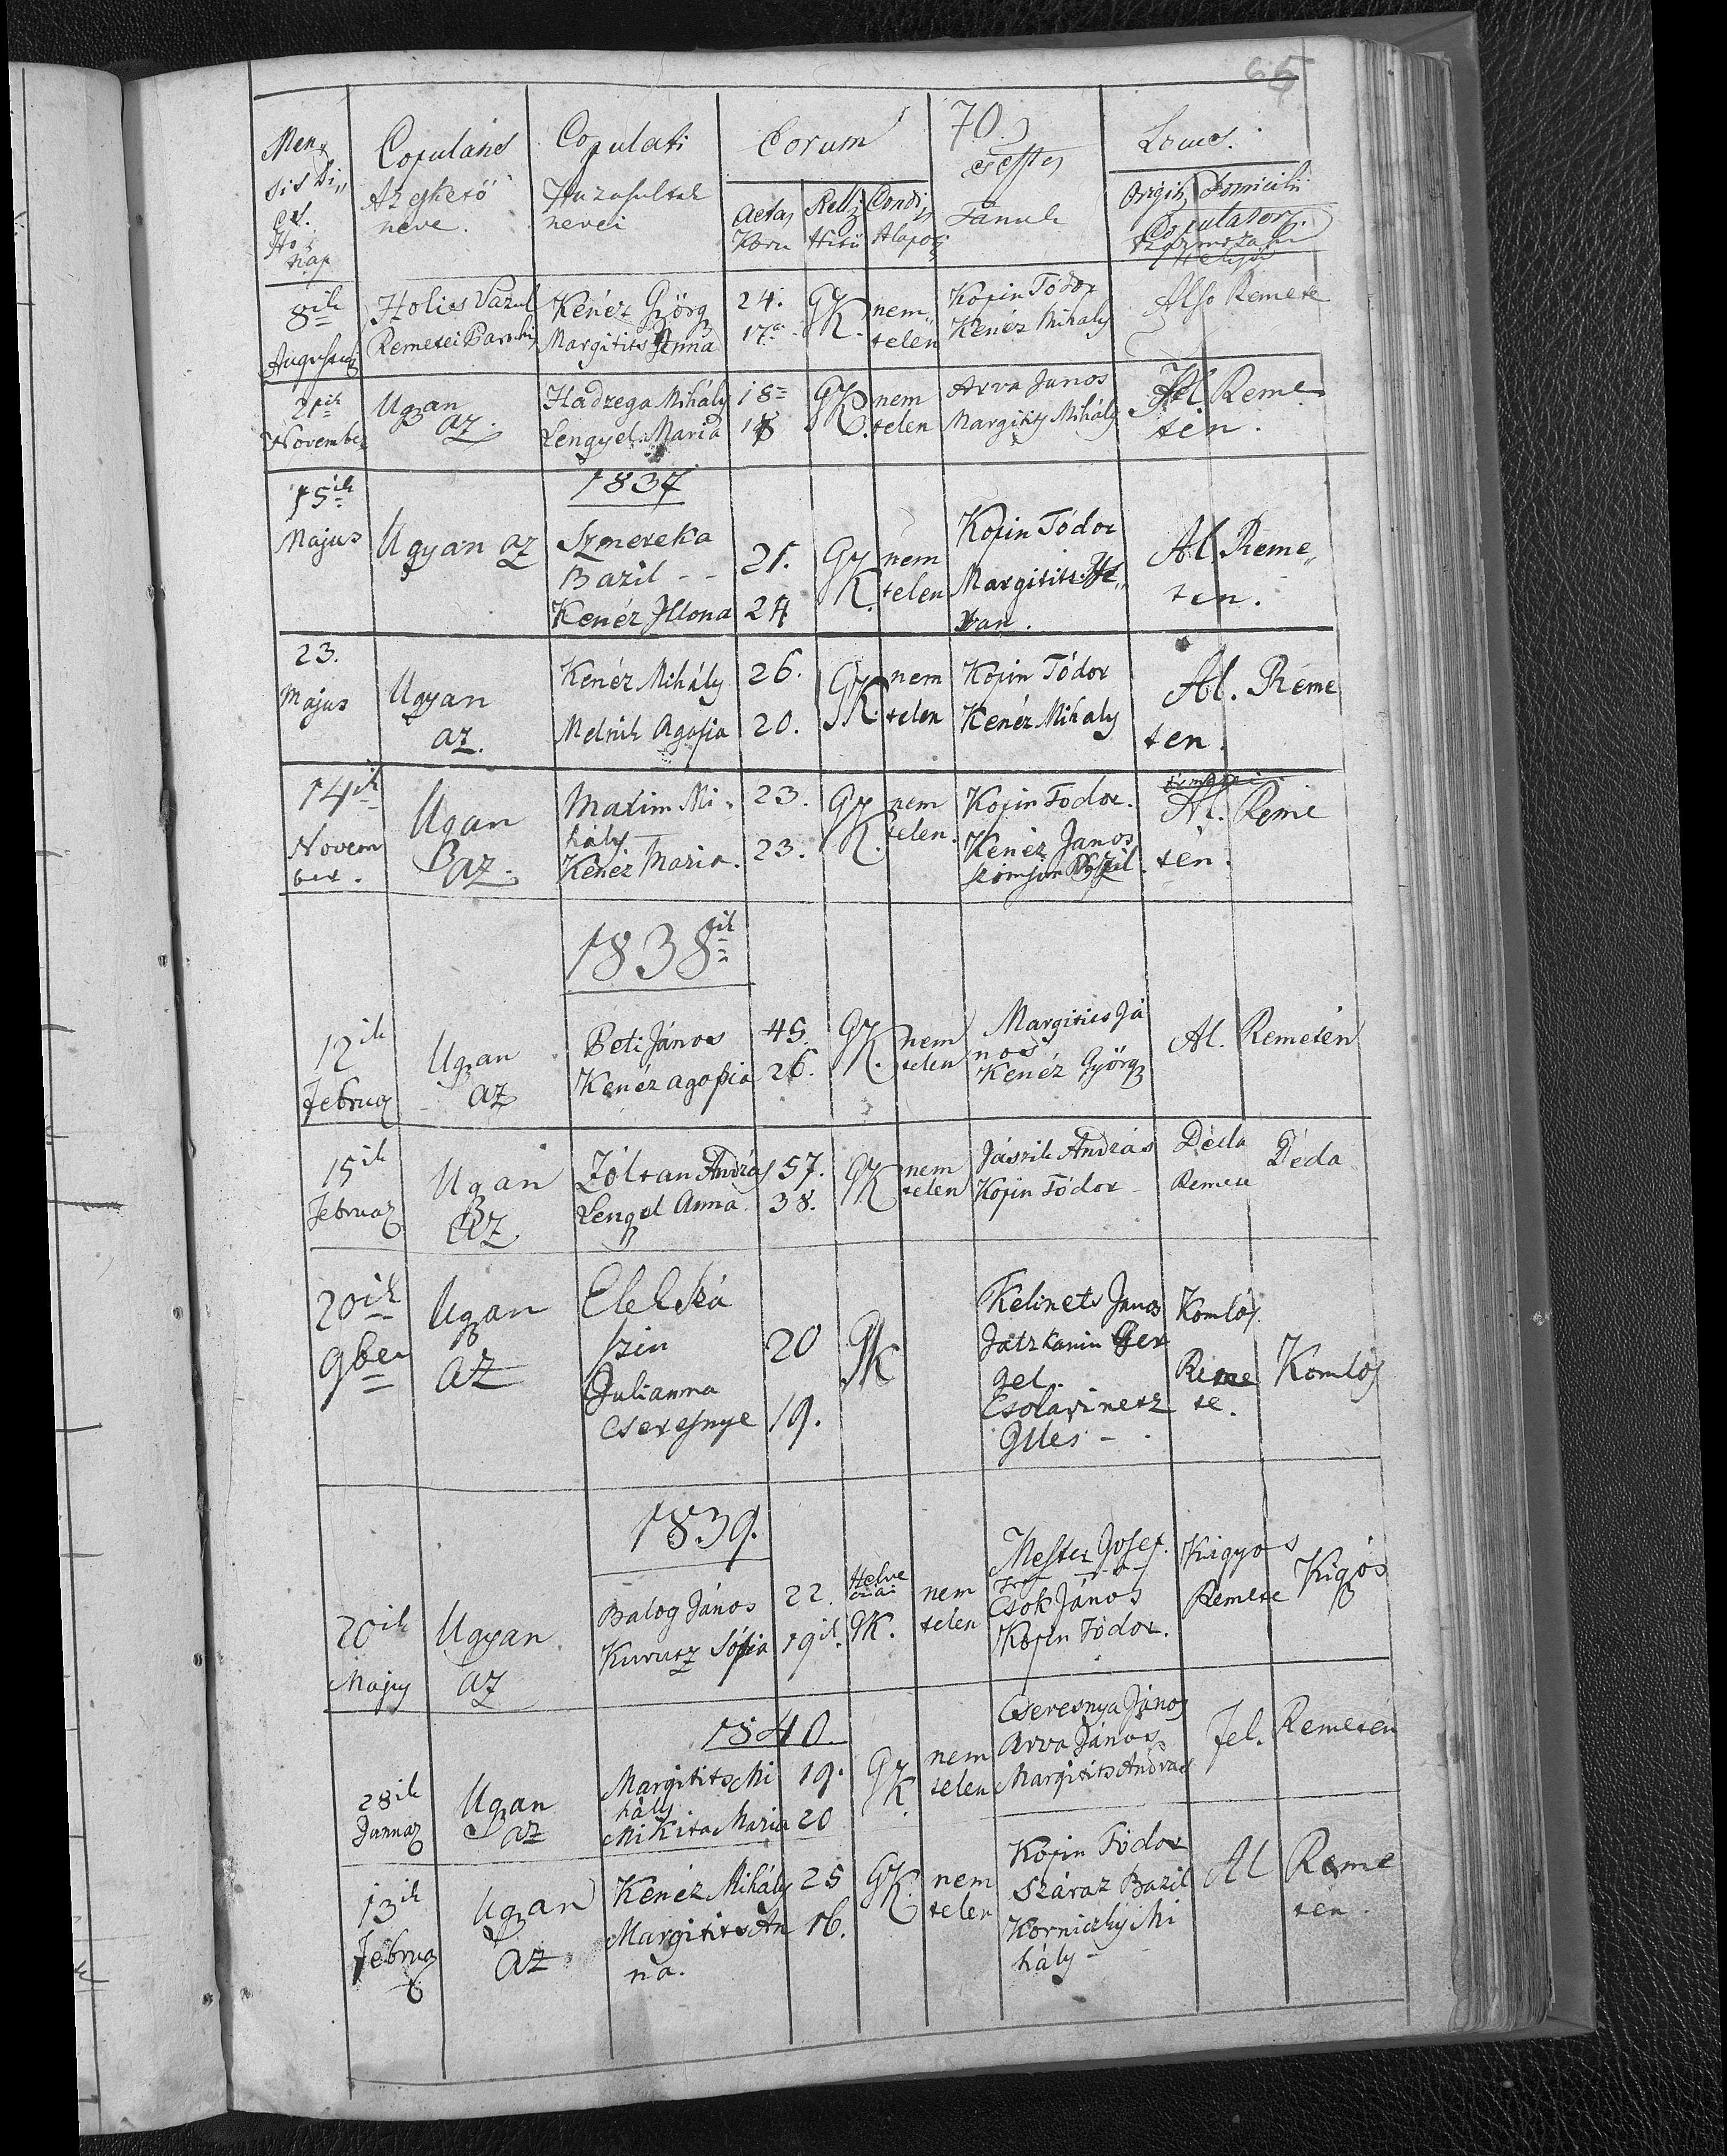 65
Men,
sis Di,,
et.
Ho
nap
Copulans
Az esketö
neve.
Copulati
Házasultak
nevei
Eorum
Aetas
Koru
Relig
Hitü
Condi
Alapot
70.
Testes
Tanuk
Locus.
Origin, Domicilii
Copulator.
8ik
Augustus
Holics Vazul
Remetei Parochus
Kenéz Györg
Margitits Anna
24.
17.
GK.
nem,,
telen
Kopin Todor
Kenéz Mihaly
Also Remete
21ik
November
Ugyan
az.
Hadzega Mihály
Lengyel Maria
18
18
GK.
nem
telen
Arva Janos
Margitits Mihály
Al Reme
tén.
1837
15ik
Majus
Ugyan az
Szmereka
Bazil - -
Kenéz Illona
21.
24
Gy
K.
nem
telen
Kopin Tódor
Margitits Ist,,
van.
Al. Reme,,
ten.
23.
Majus
Ugyan
az.
Kenéz Mihály
Melnik Agafia
26.
20.
GK.
nem
telen
Kopin Tódor
Kenéz Mihaly
Al. Reme
ten.
14ik
Novem
ber.
Ugyan
az.
Maxim Mi
hály
Kenéz Maria.
23.
23.
Gy
K.
nem
telen.
Kopin Todor.
Kenéz Janos
Al. Reme
tén.
1838ik
12ik
Februar
Ugyan
az
Beti János
Kenéz agafia
45.
26.
GK.
nem
telen
Margitics Já
nos
Kenéz Györg
Al. Remetén
15ik
Februar
Ugyan
az
Zóltan András
Lengel Anna.
57.
38.
GK
nem
telen
Jászik András
Kopin Tódor
Déda
Remete
Déda
20ik
9ber
Ugyan
az
Elek Szá
szin
Julianna
Cseresnye
20
19.
GK
Kelinets Janos
Jatzkanin Ger
gel.
Csolavinetz
Illés - .
Komlós
Reme
te.
Komlós
1839.
20ik
Majus
Ugyan
az
Balog János
Kurutz Sófia
22.
19ik.
Helve
cziai
GK.
nem
telen
Mester Josef.
Csok János
Kopin Tódor.
Kigyos
Remete
Kigyós
1840
28ik
Januar
Ugyan
az
Margitits Mi
hály
Mikita Maria
19.
20
GK
nem
telen
Cseresnya János
Arva János
Margitits András
Fel. Remetén
13ik
Februar
Ugyan
az
Kenéz Mihály
Margitits An
na.
25
16.
GK.
nem
telen
Kopin Tódor
Száraz Bazil
Korniczky Mi
hály -
Al Reme
ten.